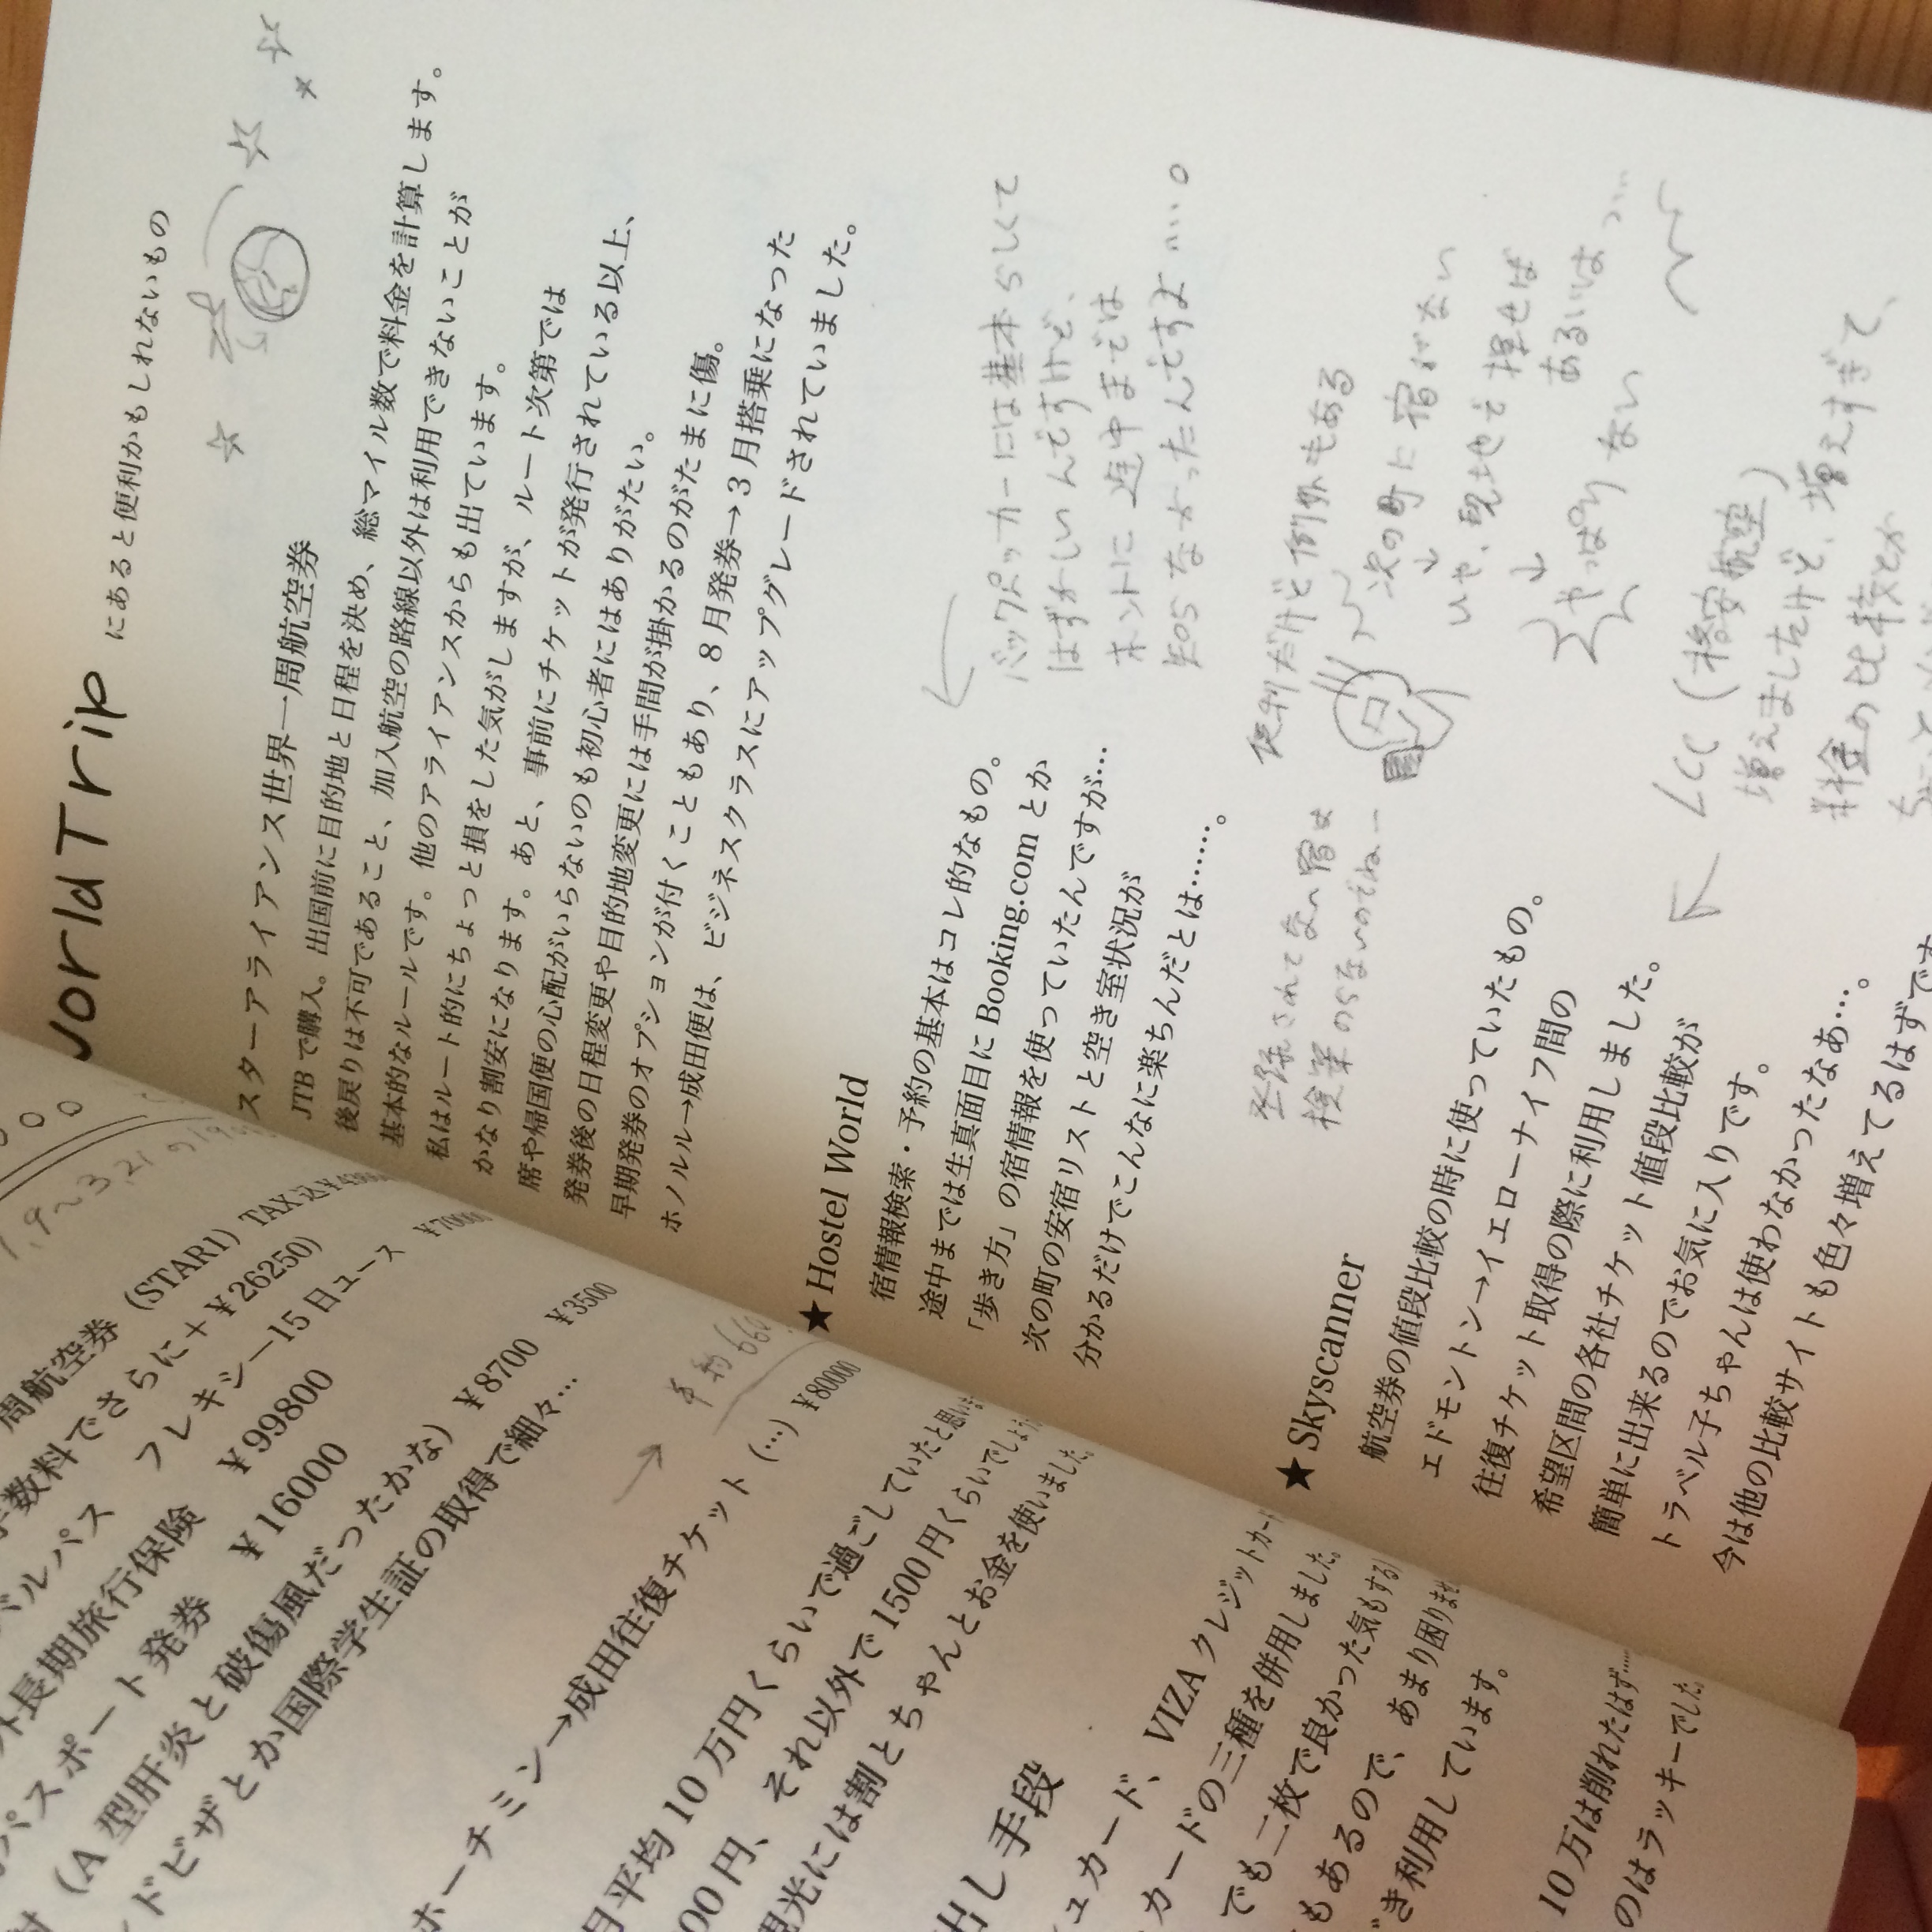 World Trip にあると便利かもしれないもの
スターアライアンス世界一周航空券
JTBで購入。出国前に目的地と日程を決め、総マイル数で料金を計算します。
後戻りは不可であること、加入航空の路線以外は利用できないことが
基本的なルールです。他のアライアンスからも出ています。
私はルート的にちょっと損をした気がしますが、ルート次第では
かなり割安になります。あと、事前にチケットが発行されている以上、
席や帰国便の心配がいらないのも初心者にはありがたい。
発券後の日程変更や目的地変更には手間が掛かるのがたまに傷。
早期発券のオプションが付くこともあり、8月発券→3月搭乗になった
ホノルル→成田便は、ビジネスクラスにアップグレードされていました。
★Hostel World
宿情報検索・予約の基本はコレ的なもの。
途中までは生真面目にBooking.comとか
「歩き方」の宿情報を使っていたんですが…
次の町の安宿リストと空き室状況が
分かるだけでこんなに楽ちんだとは……。
バックパッカーには基本らしくて
はずかしいんですけど、
ホントに途中までは
知らなかったんですよ….。
便利だけど例外もある
次の町に宿がない
↓
いや、現地で探せば
あるいはっ…
↓
やっぱりない
登録されてない宿は
検索のらないのでねー
★Skyscanner
航空券の値段比較の時に使っていたもの。
エドモントン→イエローナイフ間の
往復チケット取得の際に利用しました。
希望区間の各社チケット値段比較が
簡単に出来るのでお気に入りです。
トラベル子ちゃんは使わなかったなあ…。
今は他の比較サイトも色々増えてるはずです
LCC(格安航空)
増えましたけど、増えすぎて、
料金の比較とか
周航空券(STAR1) TAX込
手数料でさらに+¥26250)
バルパス フレキシー15日ユース ¥70000
外長期旅行保険 ¥99800
パスポート発券 ¥16000
(A型肝炎と破傷風だったかな) ¥8700 ¥3500
ドビザとか国際学生証の取得で細々…
ホーチミン→成田往復チケット(…) ¥80000
月平均10万円くらいで過ごしていたと思い
00円、それ以外で1500円くらいでしょう
観光には割とちゃんとお金を使いました
出し手段
ュカード、VIZAクレジットカード
カードの三種を併用しました。
でも二枚で良かった気もする
もあるので、あまり困りませ
き利用しています。
10万は削れたはず……
のはラッキーでした